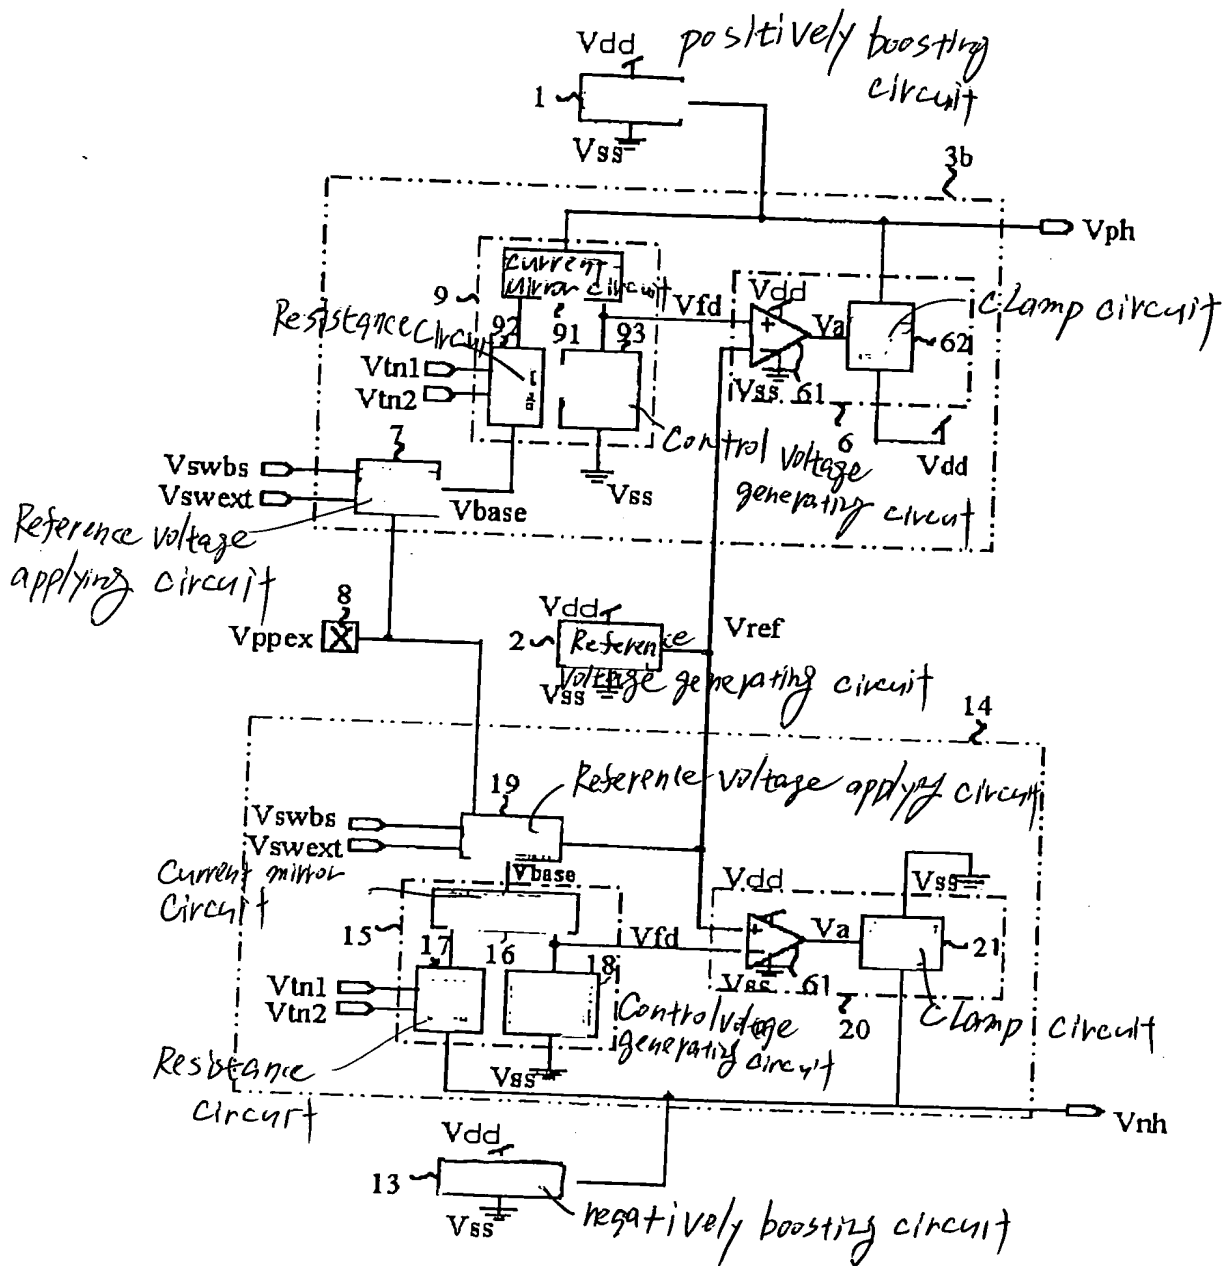 Vdd
positively boosting
circuit
1
Vss
3b
Vph
9
current
mirror circuit
Vfd
Vdd
+
−
Va
Clamp circuit
62
Resistance circuit
92
91
93
Vtn1
Vtn2
Vss
61
6
Vdd
7
Control voltage
generating circuit
Vswbs
Vswext
Vbase
Vss
Reference voltage
applying circuit
8
Vppex
Vdd
2
Reference
voltage generating circuit
Vss
Vref
14
19
Reference voltage applying circuit
Vswbs
Vswext
Vbase
Current mirror
circuit
Vdd
Vss
15
17
16
18
Vfd
+
−
Va
21
Vtn1
Vtn2
Vss
61
20
Control voltage
generating circuit
Clamp circuit
Vss
Resistance
circuit
Vnh
Vdd
13
Vss
negatively boosting circuit